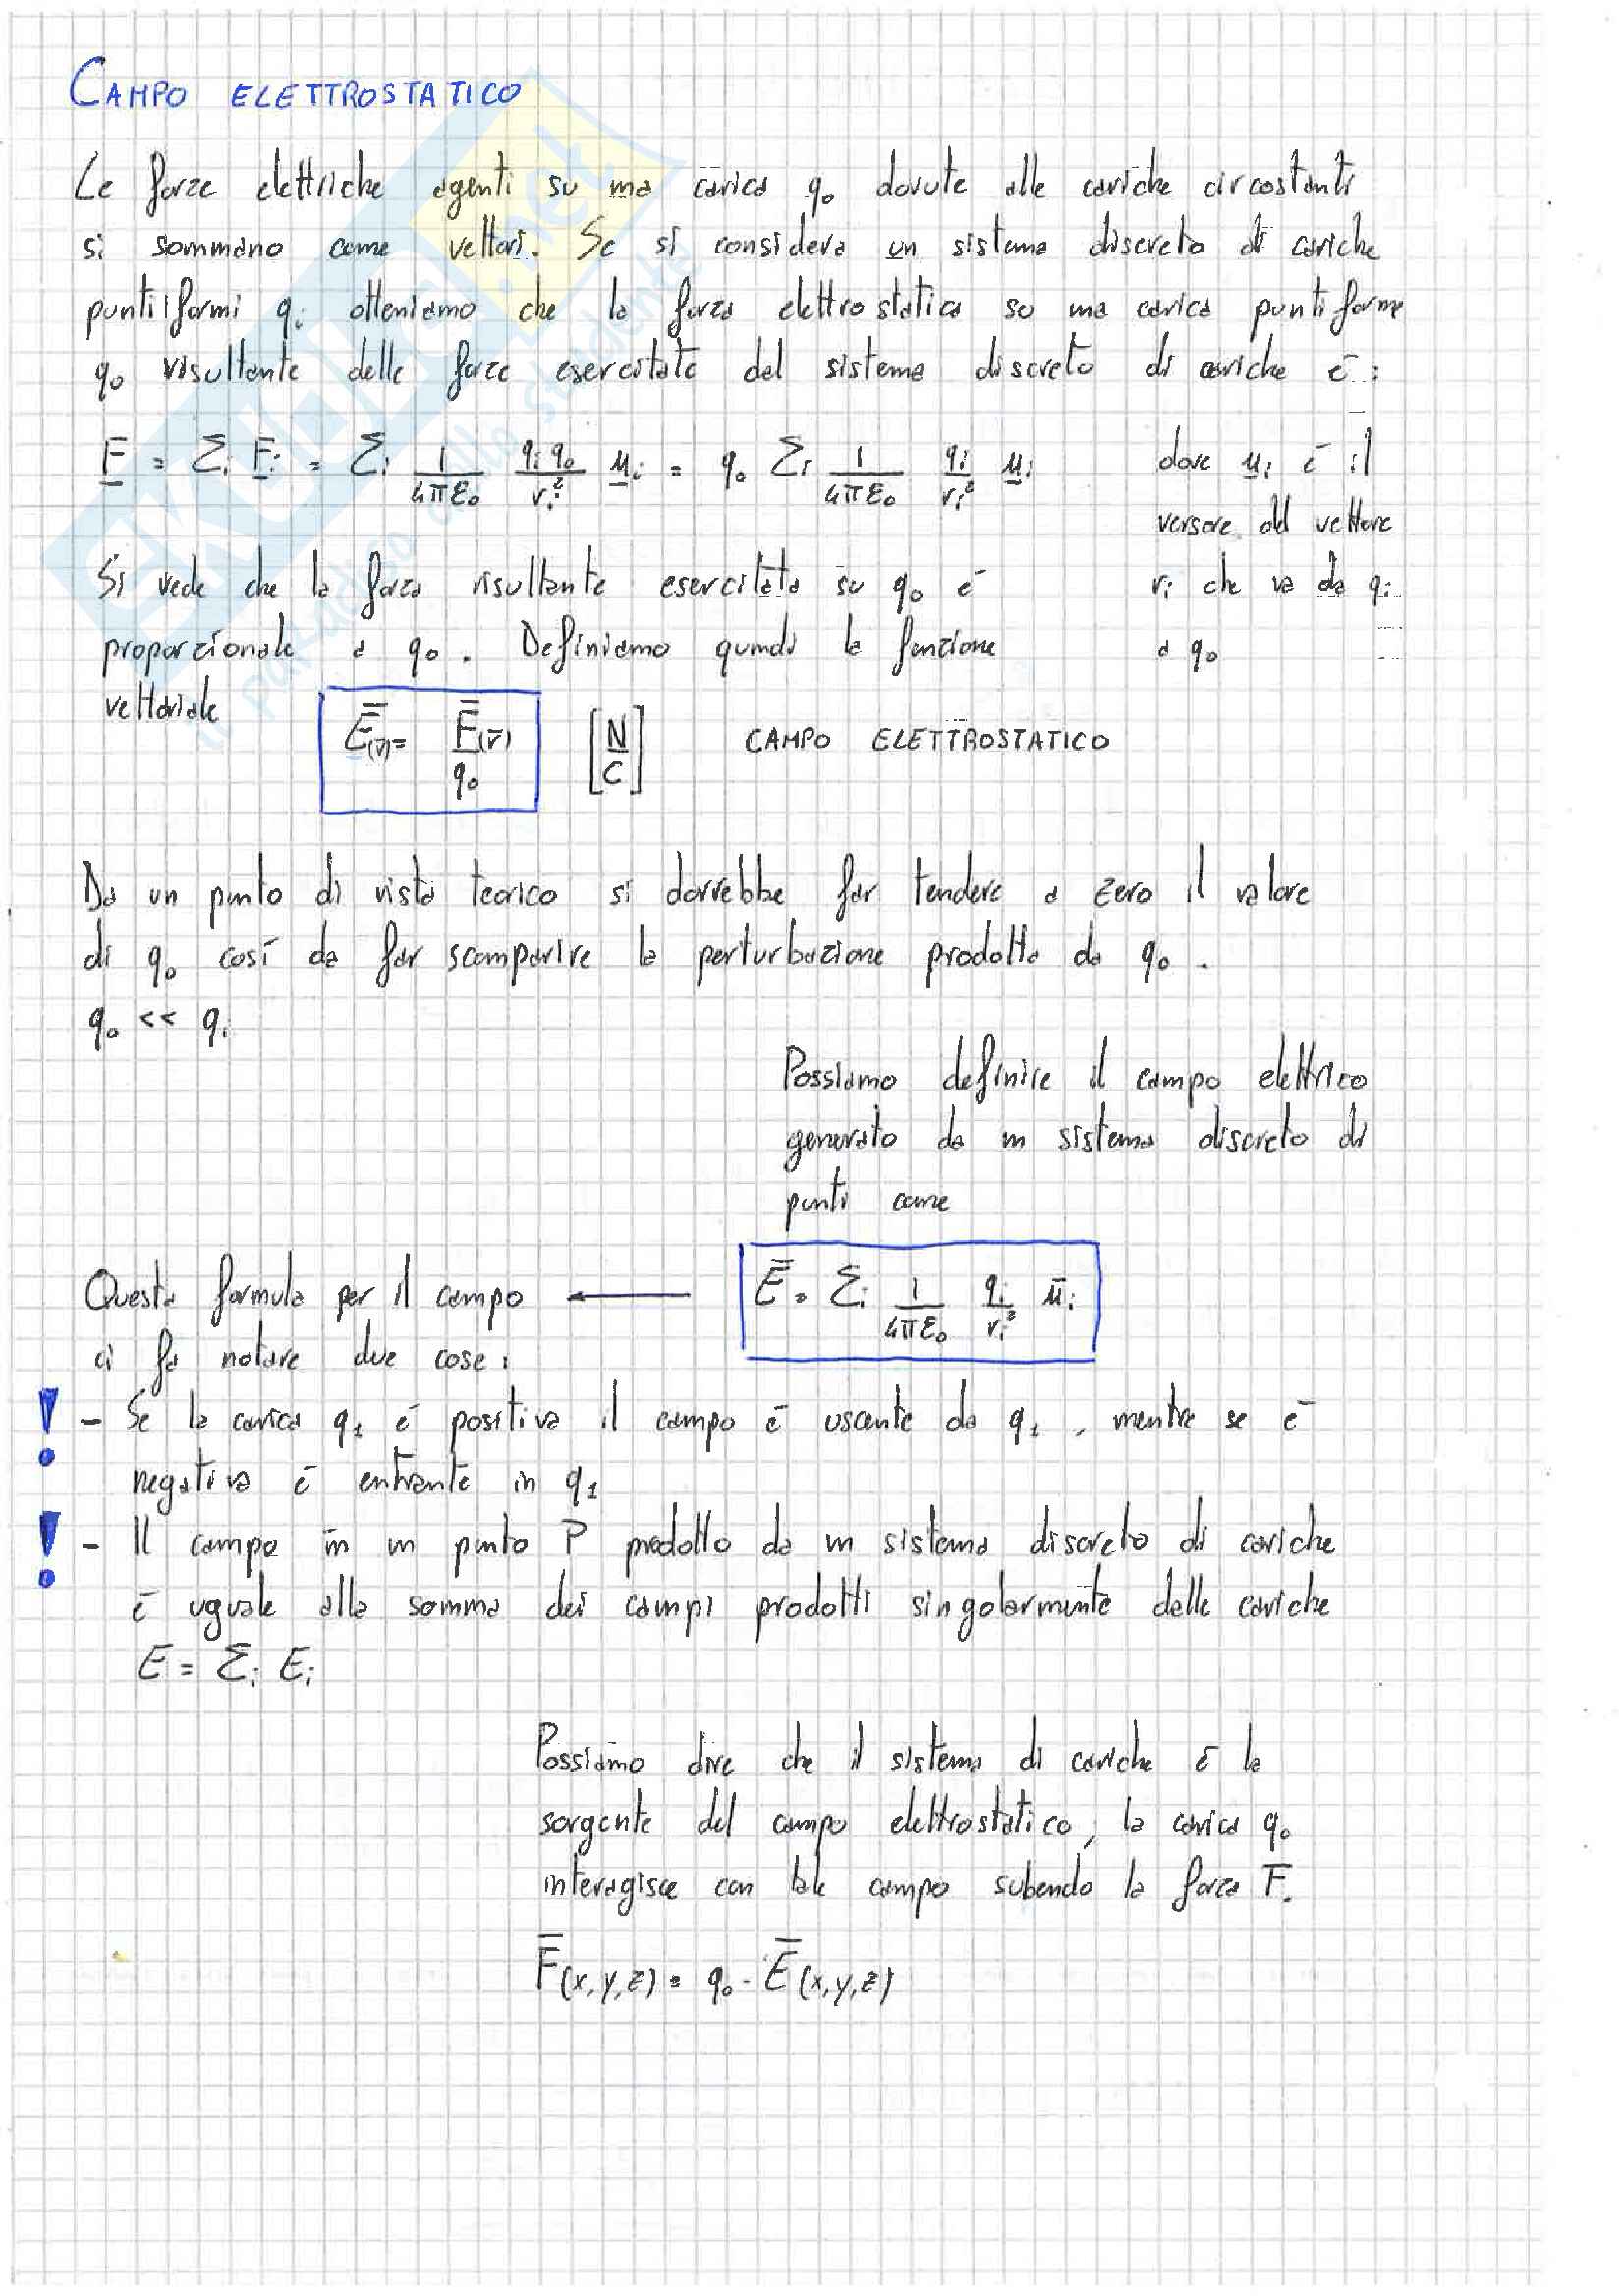 CAMPO ELETTROSTATICO
Le forze elettriche agenti su una carica q₀ dovute alle cariche circostanti
si sommano come vettori. Se si considera un sistema discreto di cariche
puntiformi qᵢ otteniamo che la forza elettrostatica su una carica puntiforme
q₀ risultante delle forze esercitate dal sistema discreto di cariche è :
F = Σᵢ Fᵢ = Σᵢ 1/4πε₀ qᵢq₀/rᵢ² uᵢ = q₀ Σᵢ 1/4πε₀ qᵢ/rᵢ² uᵢ
dove uᵢ è il
versore del vettore
rᵢ che va da qᵢ
a q₀
Si vede che la forza risultante esercitata su q₀ è
proporzionale a q₀. Definiamo quindi la funzione
vettoriale
E̅(r̅) = F̅(r̅)/q₀ [N/C] CAMPO ELETTROSTATICO
Da un punto di vista teorico si dovrebbe far tendere a zero il valore
di q₀ così da far scomparire la perturbazione prodotta da q₀.
q₀ << qᵢ
Possiamo definire il campo elettrico
generato da un sistema discreto di
punti come
E̅ = Σᵢ 1/4πε₀ qᵢ/rᵢ² u̅ᵢ
Questa formula per il campo ←
ci fa notare due cose:
! - Se la carica q₁ è positiva il campo è uscente da q₁, mentre se è
negativa è entrante in q₁
! - Il campo in un punto P prodotto da un sistema discreto di cariche
è uguale alla somma dei campi prodotti singolarmente dalle cariche
E = Σᵢ Eᵢ
Possiamo dire che il sistema di cariche è la
sorgente del campo elettrostatico, la carica q₀
interagisce con tale campo subendo la forza F̅.
F̅(x,y,z) = q₀ · E̅(x,y,z)